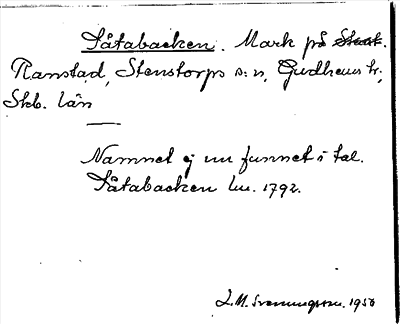 Påtabacken. Mark på
Ranstad, Stenstorps s:n, Gudhems hr,
Skb. län
Namnet ej nu funnet i tal.
Påtabacken lm. 1792.
L.M. Svenungsson. 1950